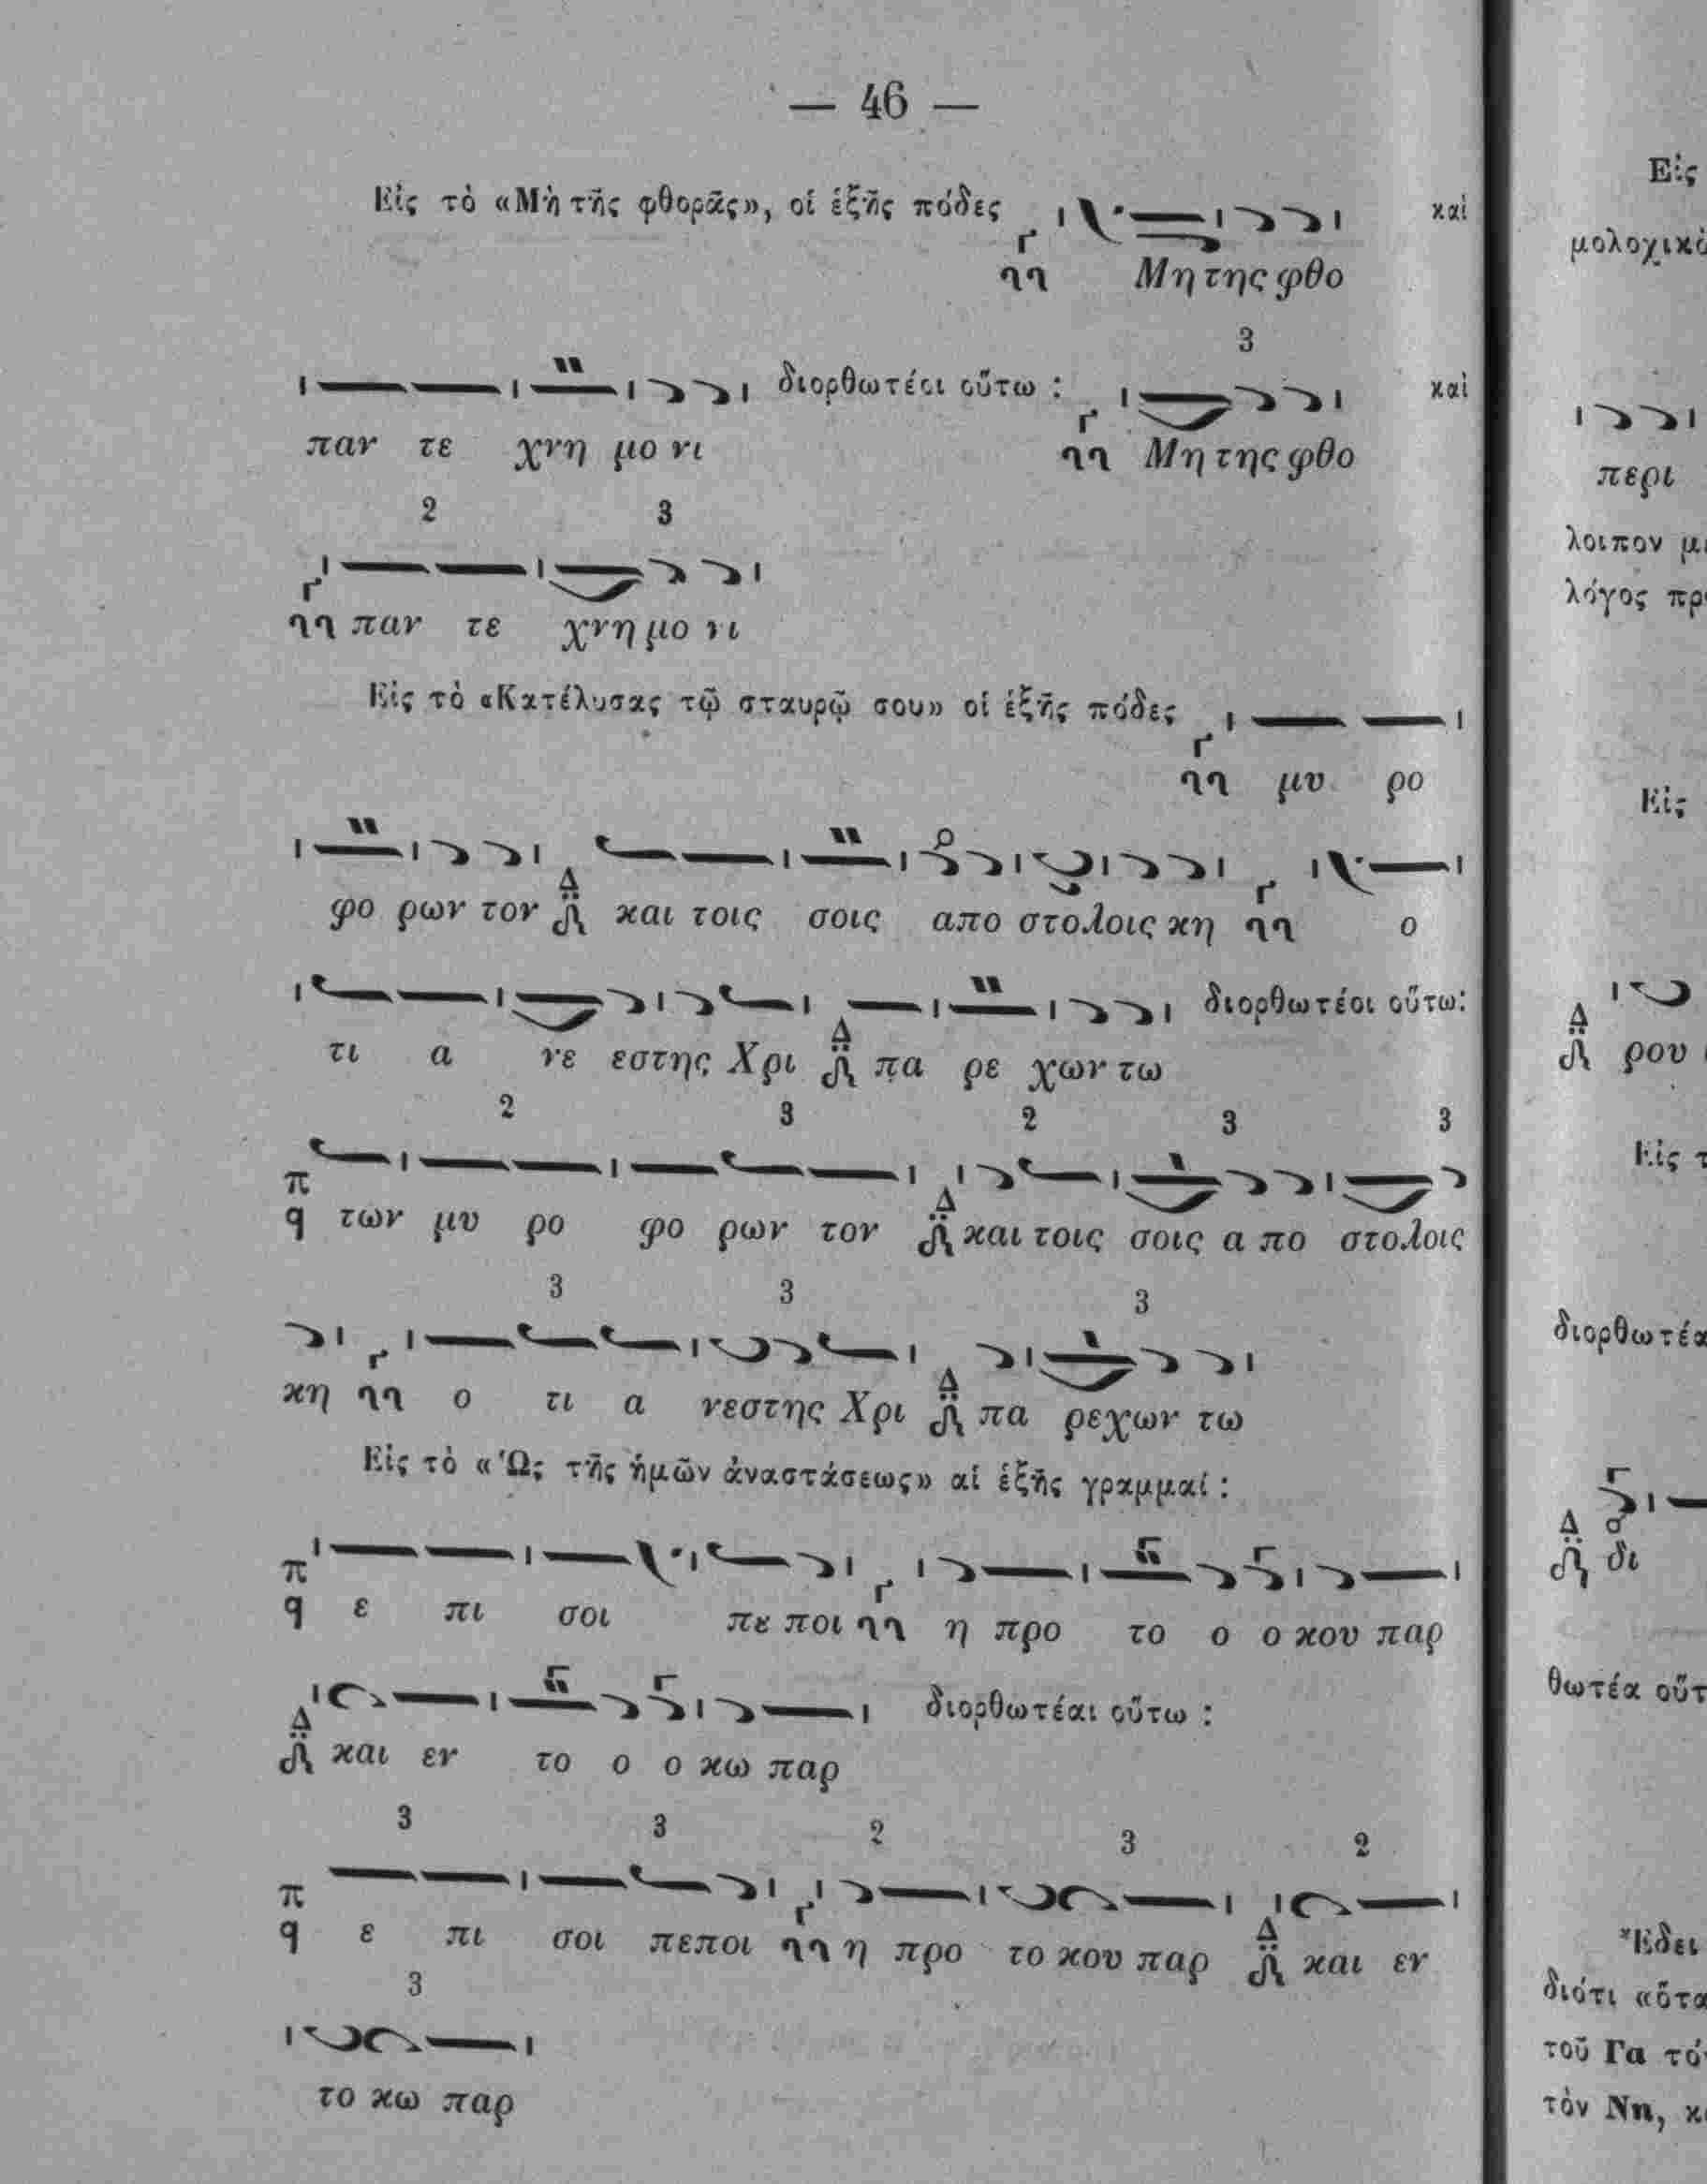 — 46 —
Εἰς τὸ «Μὴ τῆς φθορᾶς», οἱ ἑξῆς πόδες καὶ
Μη της φθο
3
διορθωτέοι οὕτω : καὶ
παν τε χνη μο νι Μη της φθο
2 3
παν τε χνη μο νι
Εἰς τὸ «Κατέλυσας τῷ σταυρῷ σου» οἱ ἑξῆς πόδες
μυ ρο
φο ρων τον Δ και τοις σοις απο στολοις κη ο
διορθωτέοι οὕτω:
τι α νε εστης Χρι Δ πα ρε χων τω
2 3 2 3 3
π
q των μυ ρο φο ρων τον Δ και τοις σοις α πο στολοις
3 3 3
κη ο τι α νεστης Χρι Δ πα ρεχων τω
Εἰς τὸ «Ὡς τῆς ἡμῶν ἀναστάσεως» αἱ ἑξῆς γραμμαί :
π
q ε πι σοι πε ποι η προ το ο ο κου παρ
διορθωτέαι οὕτω :
Δ και εν το ο ο κω παρ
3 3 2 3 2
π
q ε πι σοι πεποι η προ το κου παρ Δ και εν
3
το κω παρ
Εἰς
περι
λοιπον
Εἰς
Δ ρου
Εἰς
Δ δι
θωτέα
Ἔδει
τοῦ Γα
τὸν Νη,